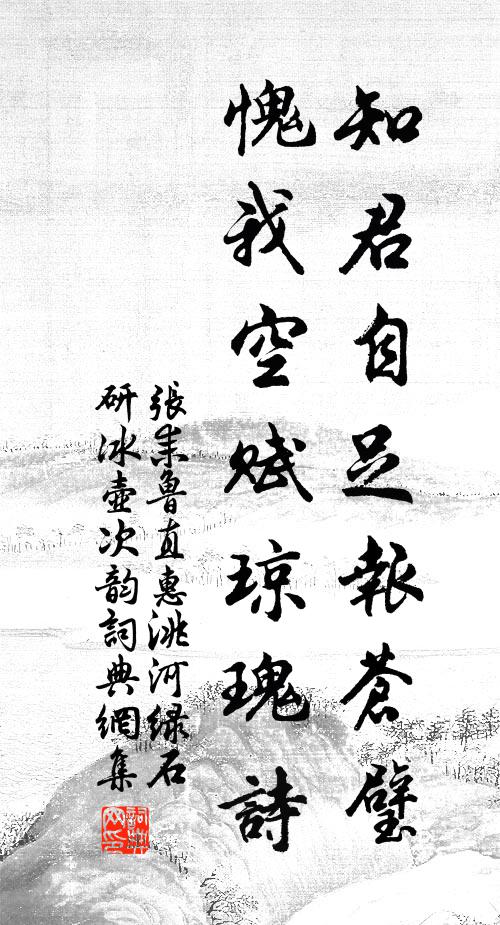 知君自足報蒼璧
愧我空賦琼瑰詩
張耒魯直惠洮河緑石
研冰壺次韵詞典網集